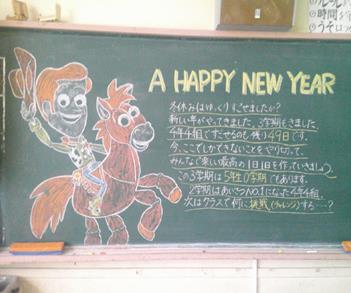 A HAPPY NEW YEAR
冬休みはゆっくりすごせましたか?
新しい年がやってきました。3学期もきました。
4年4組ですごせるのも残り49日です。
今、ここでしかできないことをやり切って、
みんなで楽しい最高の1日1日を作っていきましょう。
この3学期は5年生0学期でもあります。
2学期はあいさつNO.1になった4年4組。
次はクラスで何に挑戦(チャレンジ)する…?
時間